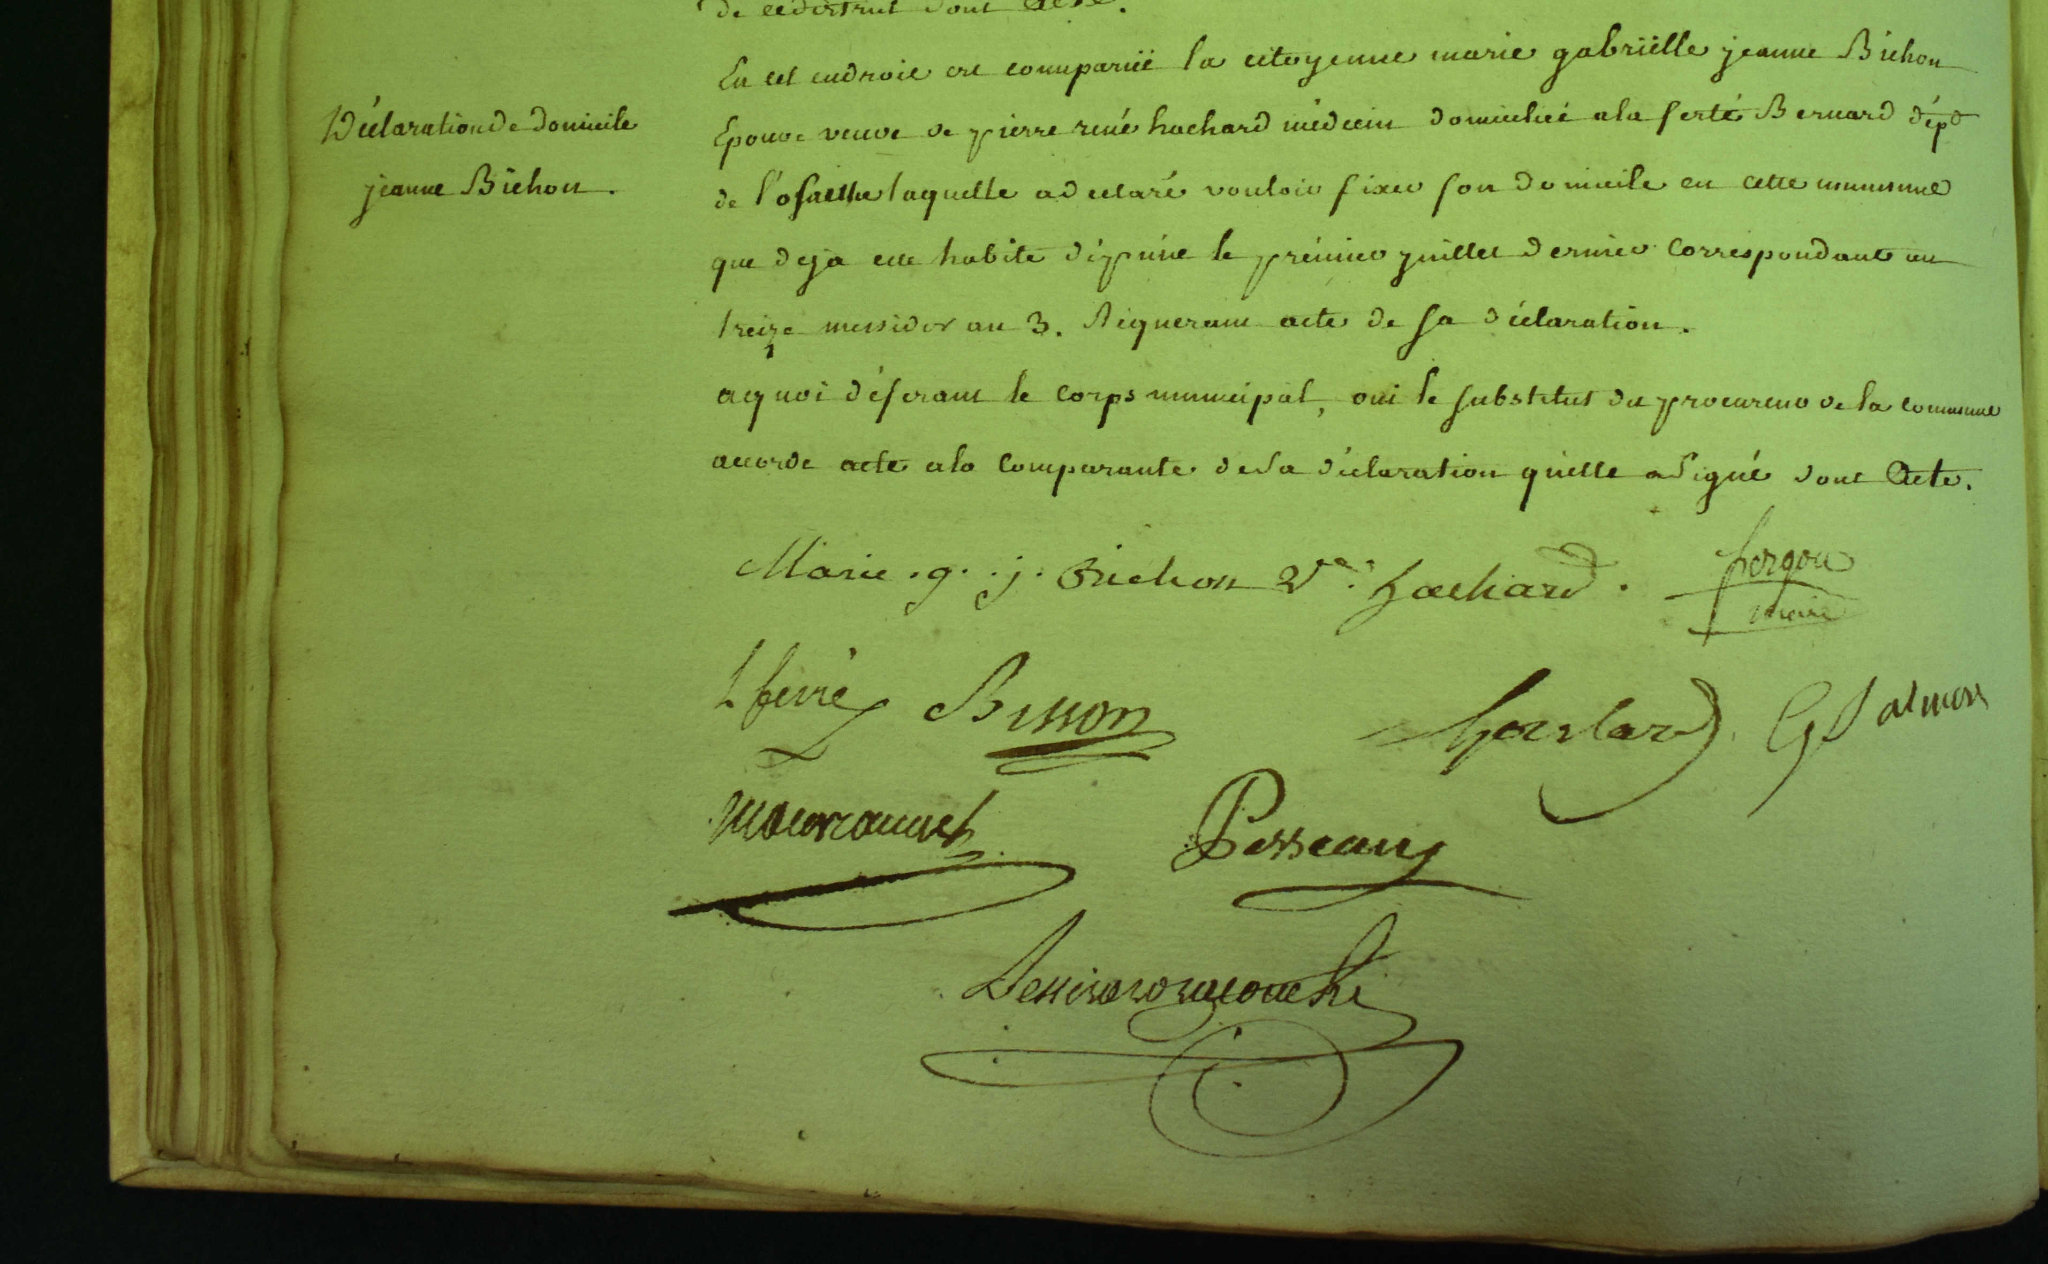 de ce district dont Acte.
En cet endroit est comparüe la citoyenne marie gabriëlle jeanne Bichon
Déclaration de domicile
jeanne Bichon.
Epouse veuve de pierre rené hachard médecin domicilié a la ferté Bernard dépt
de laquelle a déclaré vouloir fixer son domicile en cette commune
que deja elle habite dépuis le prémier juillet dernier correspondant au
treize messidor an 3. Réquerant acte de sa déclaration.
a quoi déferant le corps municipal, oui le substitut du procureur de la commune
accorde acte a la comparante de sa déclaration qu'elle a signé dont Acte.
Marie . g . j . Bichon Ve. hachard .
maire
Bisson
G Salmon